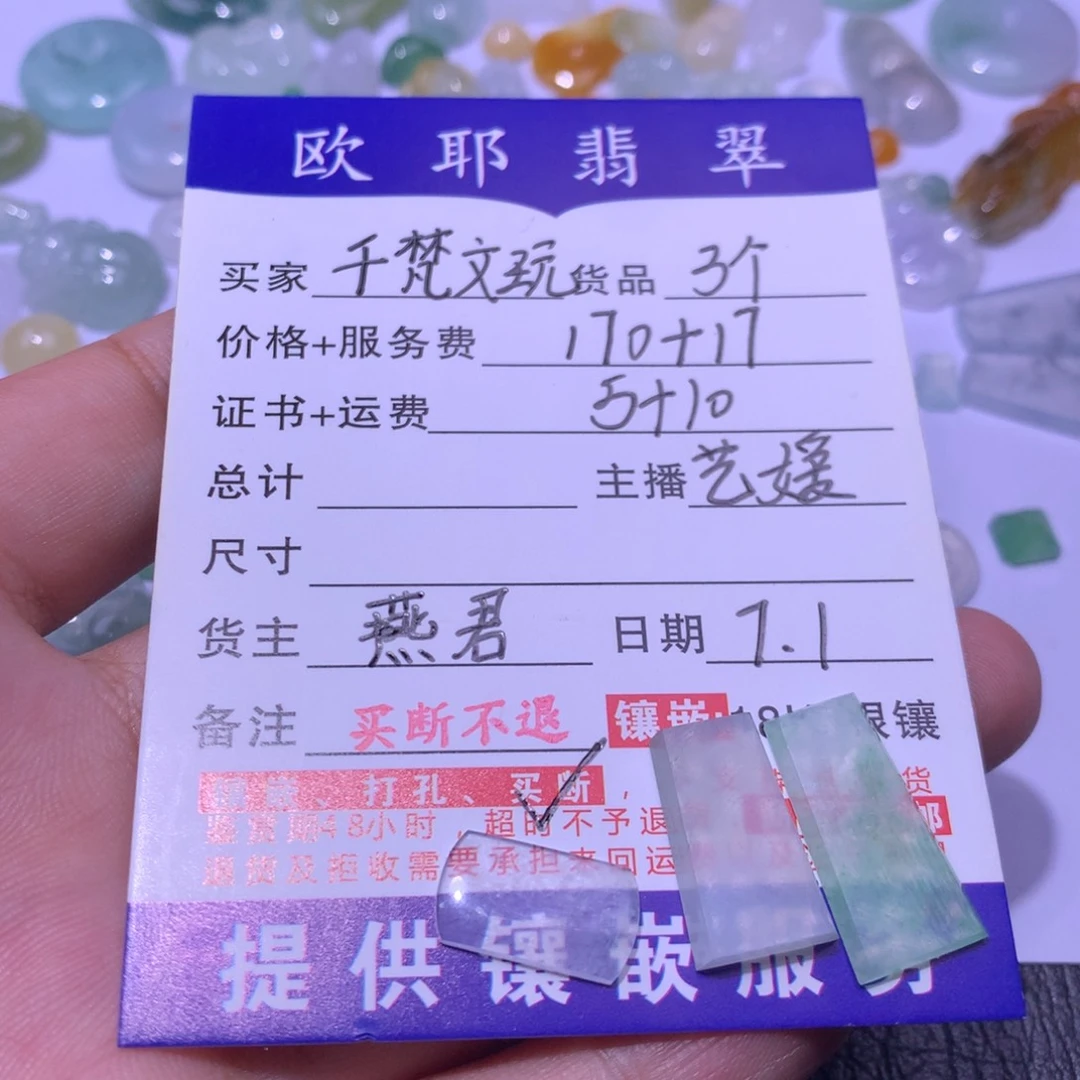 欧耶翡翠
买家 千梵文玩 货品 3个
价格+服务费 170+17
证书+运费 5+10
总计 主播 艺媛
尺寸
货主 燕君 日期 7.1
备注 买断不退 镶嵌 银镶
、打孔、买断, 货
鉴赏期48小时,超时不予退
退货及拒收需要承担来回运
提供镶嵌服务